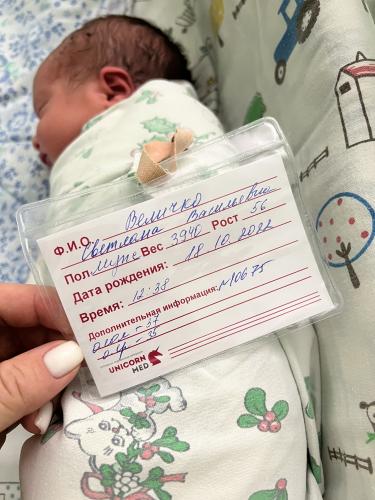 Величко
Ф.И.О. Светлана Васильевна
Пол муж Вес 3940 Рост 56
Дата рождения: 18.10.2022
Время: 12:38
Дополнительная информация: №10675
огол - 37
огр - 36
UNICORN
MED